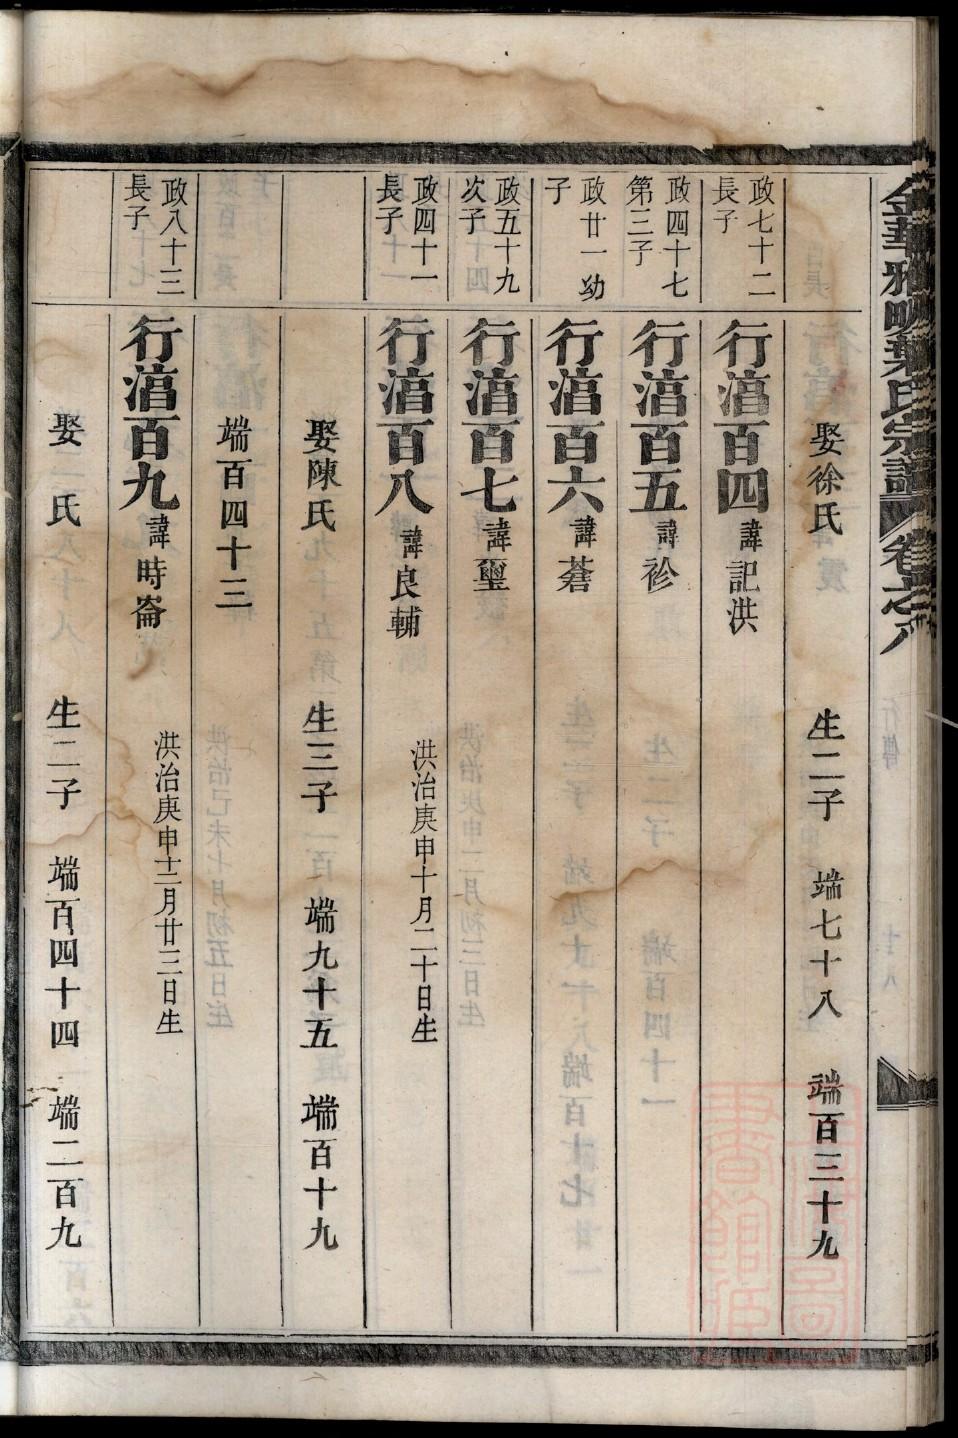 金華雅畈葉氏宗譜 卷之八
娶徐氏 生二子 端七十八 端百三十九
政七十二長子 行湻百四 諱記洪
政四十七第三子 行湻百五 諱袗
政廿一幼子 行湻百六 諱蒼
政五十九次子 行湻百七 諱璽
政四十一長子 行湻百八 諱良輔 洪治庚申十月二十日生
娶陳氏 生三子 端九十五 端百十九
端百四十三
政八十三長子 行湻百九 諱時崙 洪治庚申十二月廿三日生
娶 氏 生二子 端百四十四 端二百九